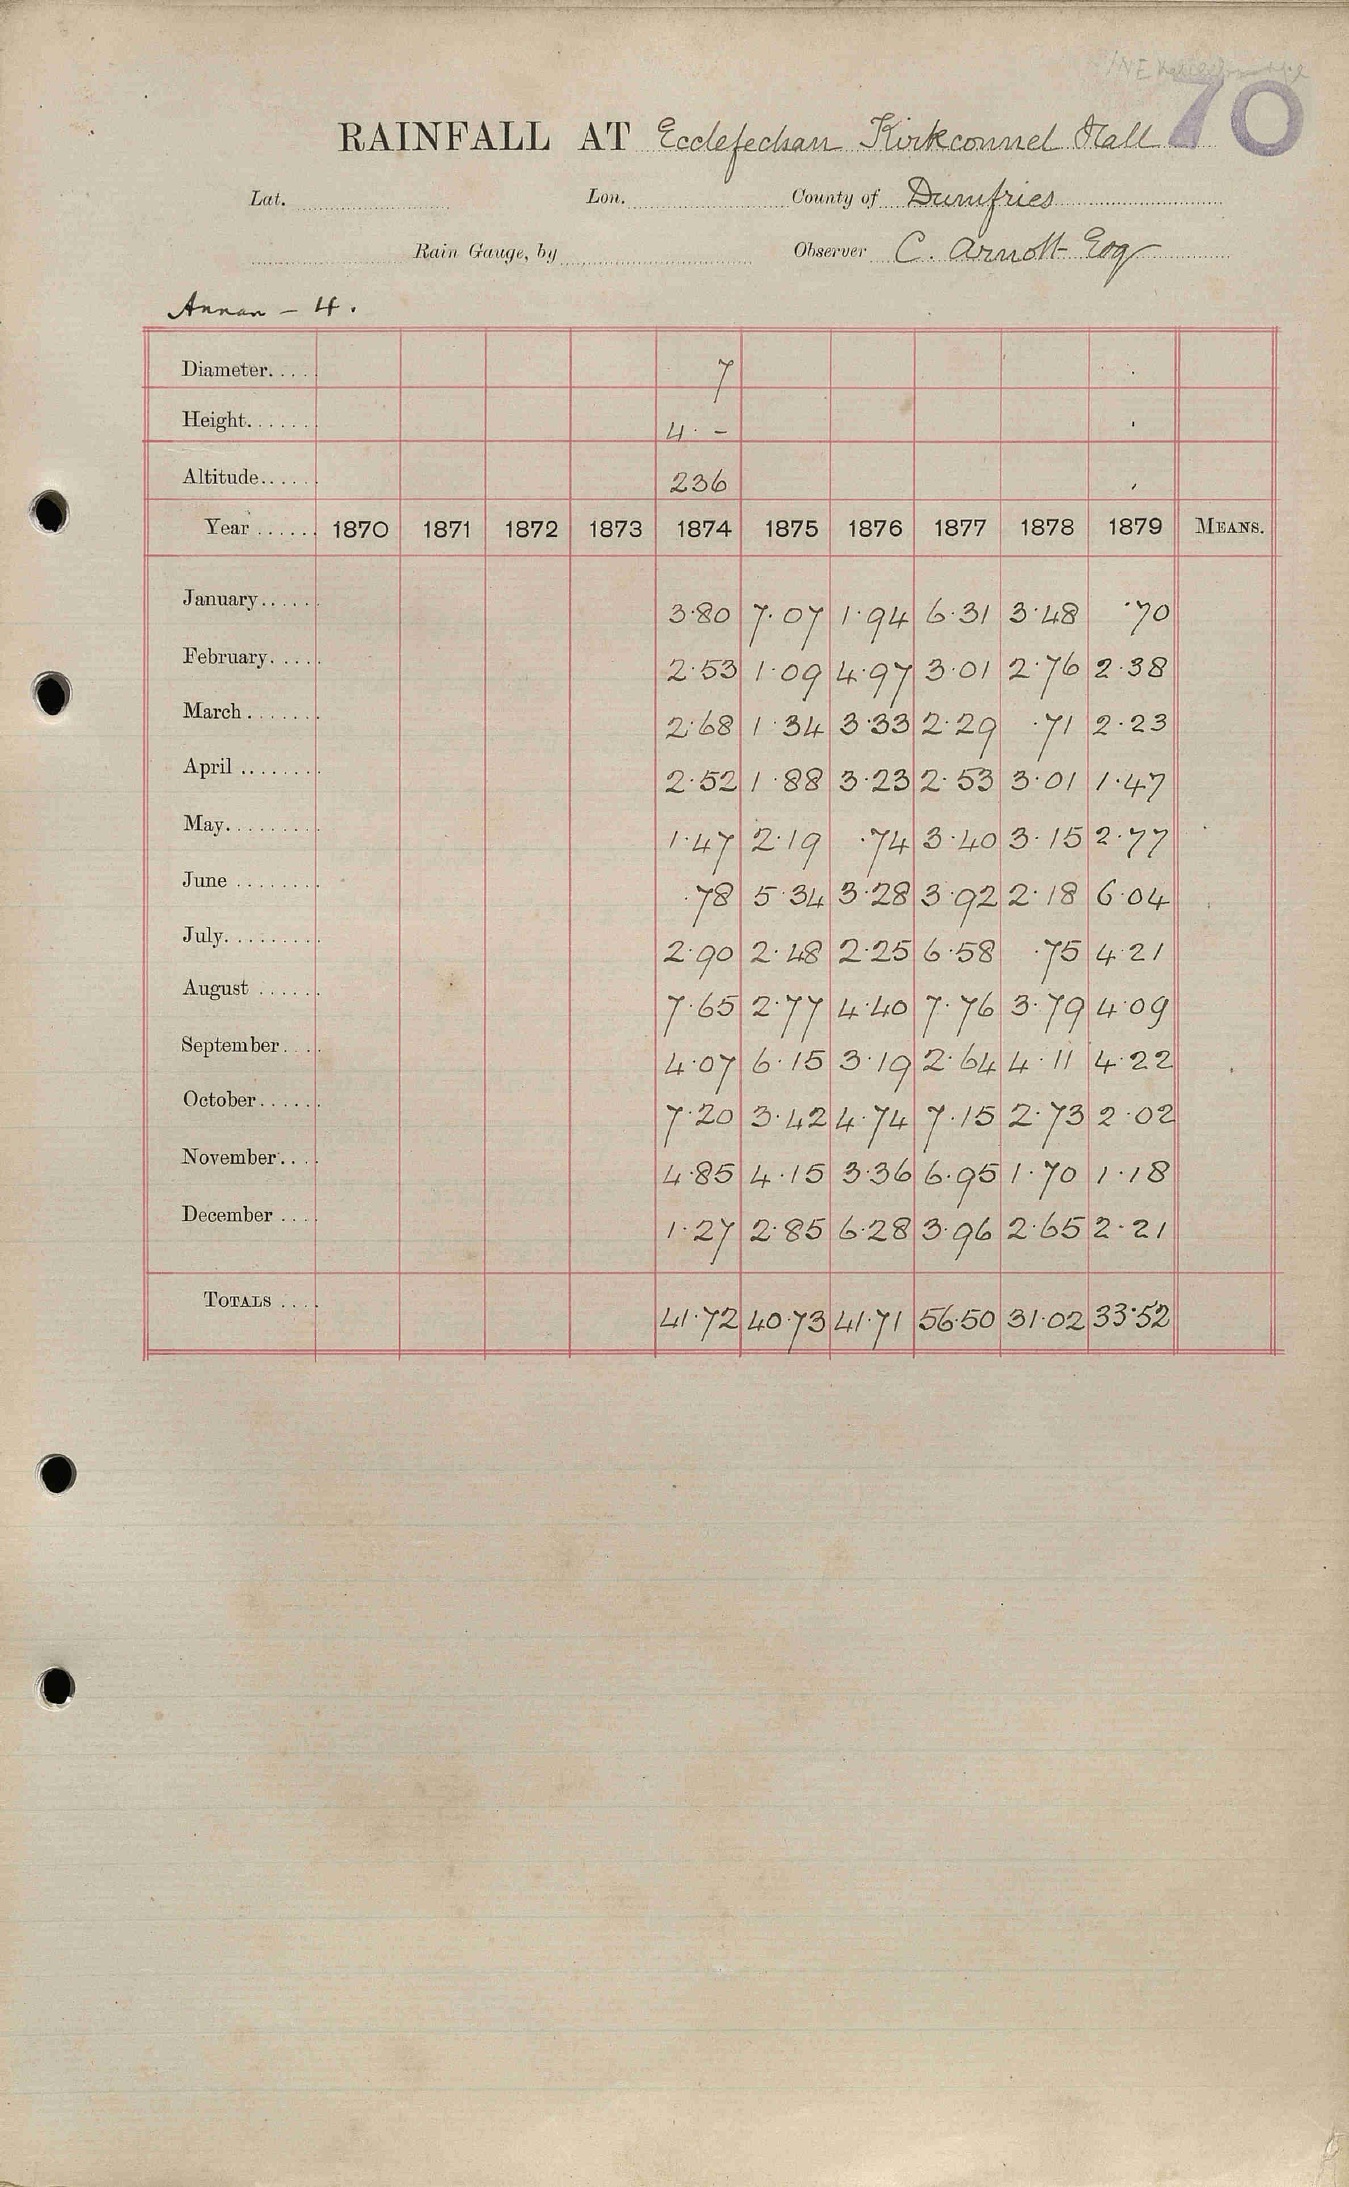 70
RAINFALL AT Ecclefechan Kirkconnel Hall
Lat. Lon. County of Dumfries
Rain Gauge, by Observer C. Arnott Esq
Annan - 4.
Diameter..... 7
Height....... 4 · -
Altitude...... 236
Year ...... 1870 1871 1872 1873 1874 1875 1876 1877 1878 1879 MEANS.
January...... 3·80 7·07 1·94 6·31 3·48 ·70
February..... 2·53 1·09 4·97 3·01 2·76 2·38
March....... 2·68 1·34 3·33 2·29 ·71 2·23
April ........ 2·52 1·88 3·23 2·53 3·01 1·47
May......... 1·47 2·19 ·74 3·40 3·15 2·77
June ........ ·78 5·34 3·28 3·92 2·18 6·04
July......... 2·90 2·48 2·25 6·58 ·75 4·21
August ...... 7·65 2·77 4·40 7·76 3·79 4·09
September.... 4·07 6·15 3·19 2·64 4·11 4·22
October...... 7·20 3·42 4·74 7·15 2·73 2·02
November.... 4·85 4·15 3·36 6·95 1·70 1·18
December .... 1·27 2·85 6·28 3·96 2·65 2·21
TOTALS .... 41·72 40·73 41·71 56·50 31·02 33·52